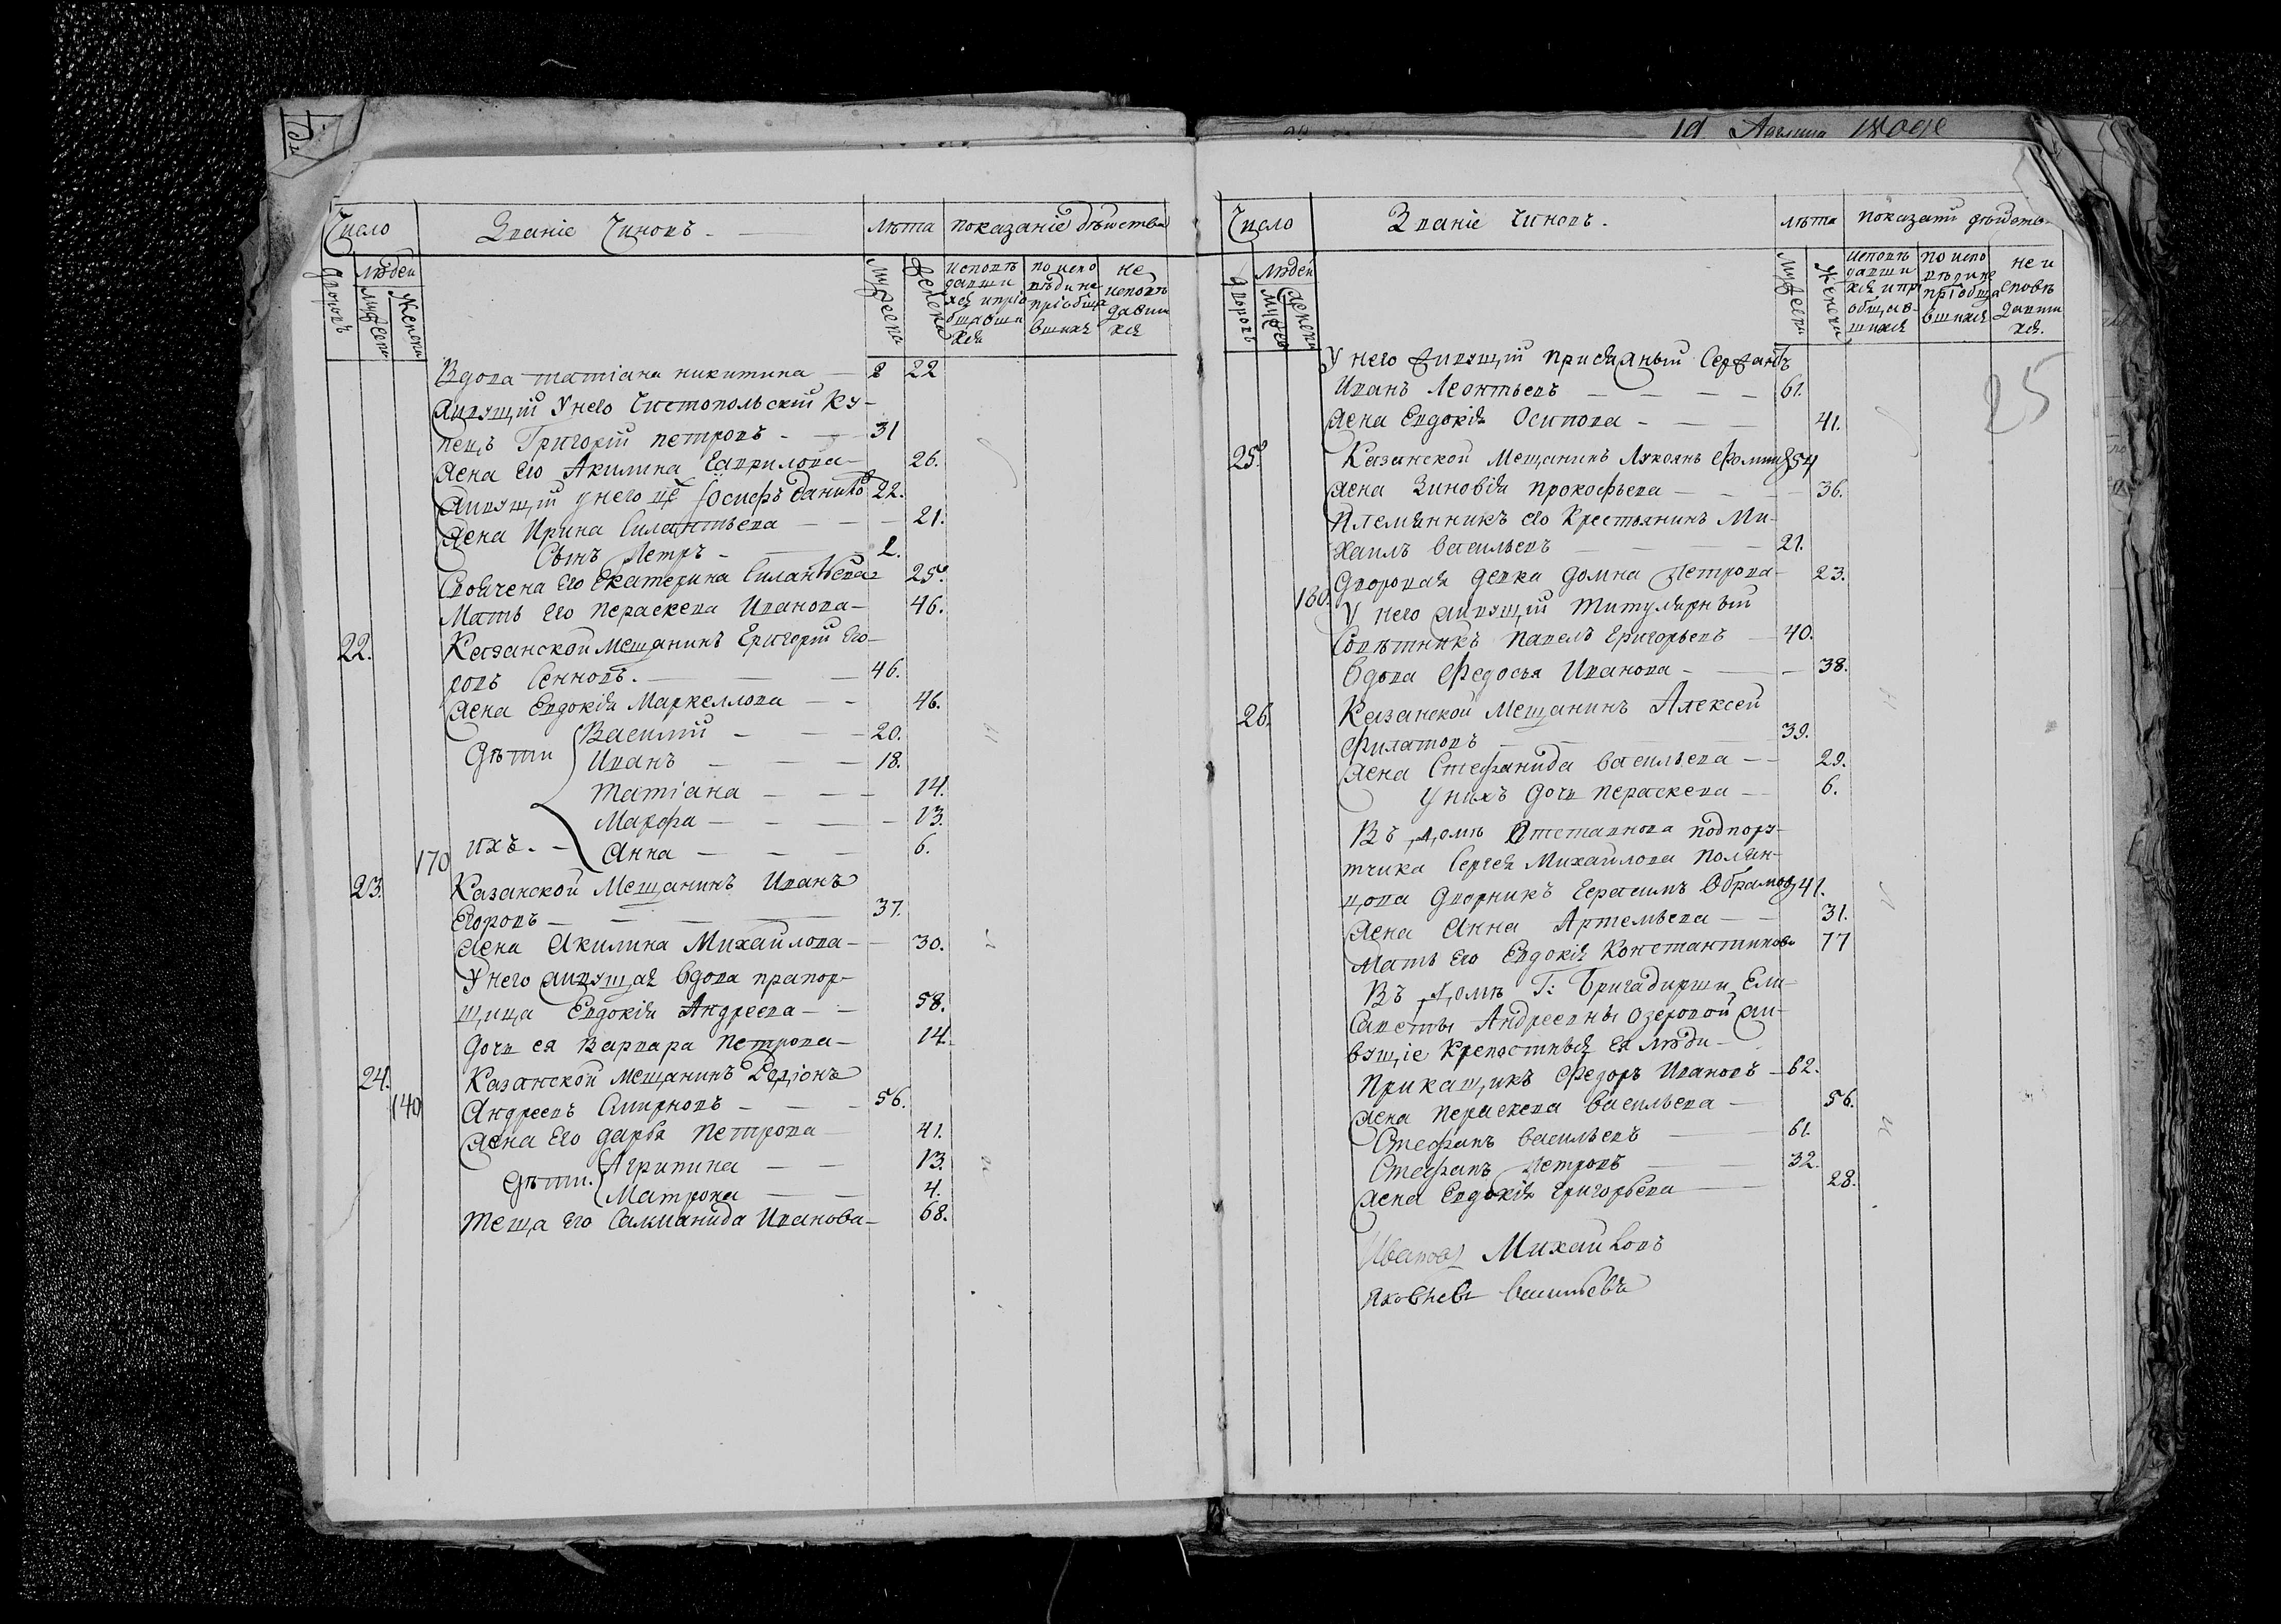 Число Званіе Чиновъ. лѣта показаніе дѣйства
людей
дворовъ мужеска женска мужеска женска
исповѣ давши хся и пріо бщавши хся
по испо вѣди не пріобща вшихъ
не исповѣ давши хся
Вдова татіана никитина 22
живущій У него Чистопольскій Ку-
пецъ Григорій петровъ 31
жена Его Акилина Гаврилова 26.
живущій у него же Іосифъ Данило 22.
жена Ирина Силантьева 21.
Сынъ Петръ
Своячена Его Екатерина Силантьева 25.
Мать Его пераскева Иванова 46.
22. Казанской мещанинъ Григорій Его-
ровъ Сенновъ. 46.
жена Евдокія Маркеллова 46.
дѣти Василій 20.
Иванъ 18.
татіана 14.
Марфа 13.
170 ихъ. Анна 6.
23. Казанской Мещанинъ Иванъ
Егоровъ 37.
жена Акилина Михайлова 30.
У него живущая вдова прапор-
щица Евдокія Андреева 58.
дочь ея Варвара петрова 14.
24. Казанской мещанинъ Родіонъ
140 Андреевъ Смирновъ 56.
жена Его дарья петрова 41.
дѣти. Агрипина 13.
Матрона 4.
теща Его Иванова 68.
Число Званіе чиновъ. лѣта показаніи дѣйства
людей
дворовъ мужеска женска мужеска женска
исповѣ давши хся и прі общав- шихся
по испо вѣди не пріобща вшихся
не и сповѣ давши хся.
У него живущій присяжный Сержантъ
Иванъ Леонтьевъ 61.
жена Евдокія Осипова 41.
25
25. Казанской Мещанинъ Лукоянъ Фомин 54
жена Зиновія прокофьева 36.
племянникъ его Крестьянинъ Ми-
хаилъ васильевъ 21.
дворовая девка домна Петрова 23.
180. У него живущій титулярный
Совѣтникъ павелъ Григорьевъ 40.
вдова Федосья Иванова 38.
26. Казанской Мещанинъ Алексей
Филатовъ 39.
жена Стефанида васильева 29.
у нихъ дочь пераскева 6.
Въ домѣ Отставнова подпору-
тчика Сергея Михайлова полян-
цова дворникъ Герасимъ Абрамов 41.
жена Анна Артемьева 31.
Мать Его Евдокія Константинова 77
Въ домѣ Г: Бригадирши Ели-
саветы Андреевны Озеровой жи-
вущіе Крепостныя Ея люди
прикащикъ Федоръ Ивановъ 62.
жена пераскева васильева 56.
Стефанъ васильевъ 61.
Стефанъ Петровъ 32.
жена Евдокія Григорьева 28.
Михайловъ
Яковлевъ васильевъ